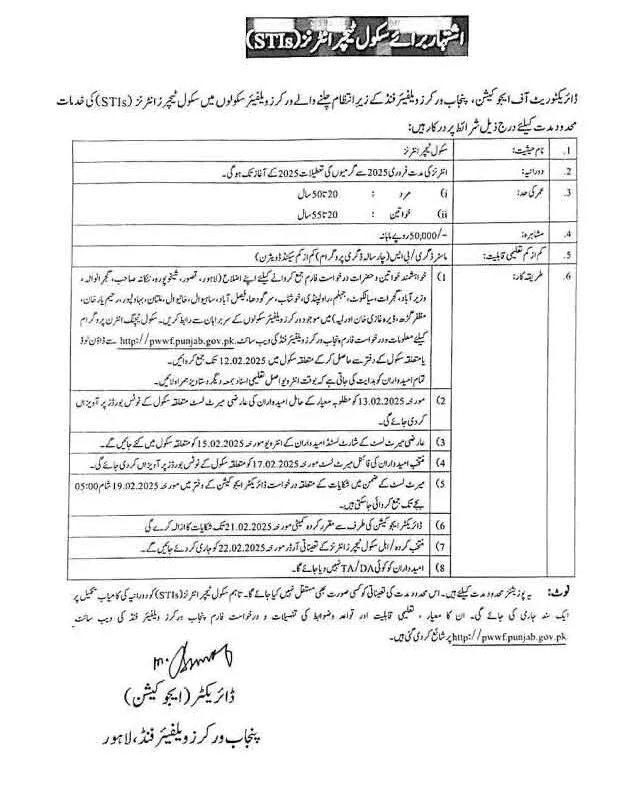 اشتہار برائے سکول ٹیچر انٹرنز (STIs)
ڈائریکٹوریٹ آف ایجوکیشن، پنجاب ورکرز ویلفیئر فنڈ کے زیر انتظام چلنے والے ورکرز ویلفیئر سکولوں میں سکول ٹیچرز انٹرنز (STIs) کی خدمات
محدود مدت کیلئے درج ذیل شرائط پر درکار ہیں:
1. نام حیثیت: سکول ٹیچر انٹرنز
2. دورانیہ: انٹرنز کی مدت فروری 2025 سے گرمیوں کی تعطیلات 2025 کے آغاز تک ہوگی۔
3. عمر کی حد: i) مرد : 20 تا 50 سال
ii) خواتین : 20 تا 55 سال
4. مشاہرہ: 50,000/- روپے ماہانہ
5. کم از کم تعلیمی قابلیت: ماسٹر ڈگری / بی ایس (چار سالہ ڈگری پروگرام) کم از کم سیکنڈ ڈویژن)
6. طریقہ کار: 1) خواہشمند خواتین و حضرات درخواست فارم جمع کروانے کیلئے اپنے اضلاع (لاہور، قصور، شیخوپورہ، ننکانہ صاحب، گجرانوالہ،
وزیر آباد، گجرات، سیالکوٹ، جہلم، راولپنڈی، خوشاب، سرگودھا، فیصل آباد، ساہیوال، خانیوال، ملتان، بہاولپور، رحیم یار خان،
مظفر گڑھ، ڈیرہ غازی خان اور لیہ) میں موجود ورکرز ویلفیئر سکولوں کے سربراہان سے رابطہ کریں۔ سکول ٹیچنگ انٹرن پروگرام
کیلئے معلومات و درخواست فارم پنجاب ورکرز ویلفیئر فنڈ کی ویب سائٹ http://pwwf.punjab.gov.pk سے ڈاؤن لوڈ
یا متعلقہ سکول کے دفتر سے حاصل کر کے متعلقہ سکول میں 12.02.2025 تک جمع کروائیں۔
تمام امیدواران کو ہدایت کی جاتی ہے کہ بوقت انٹرویو اصل تعلیمی اسناد بمعہ دیگر دستاویز ہمراہ لائیں۔
2) مورخہ 13.02.2025 کو مطلوبہ معیار کے حامل امیدواران کی عارضی میرٹ لسٹ متعلقہ سکول کے نوٹس بورڈز پر آویزاں
کر دی جائے گی۔
3) عارضی میرٹ لسٹ کے شارٹ لسٹڈ امیدواران کے انٹرویو مورخہ 15.02.2025 کو متعلقہ سکول میں لئے جائیں گے۔
4) منتخب امیدواران کی فائنل میرٹ لسٹ مورخہ 17.02.2025 کو متعلقہ سکول کے نوٹس بورڈز پر آویزاں کر دی جائے گی۔
5) میرٹ لسٹ کے ضمن میں شکایات کے متعلقہ درخواست ڈائریکٹر ایجوکیشن کے دفتر میں مورخہ 19.02.2025 شام 05:00
بجے تک جمع کروائی جاسکتی ہیں۔
6) ڈائریکٹر ایجوکیشن کی طرف سے مقرر کردہ کمیٹی مورخہ 21.02.2025 تک شکایات کا ازالہ کرے گی
7) منتخب کردہ / اہل سکول ٹیچرز انٹرنز کے تعیناتی آرڈر مورخہ 22.02.2025 کو جاری کر دئے جائیں گے۔
8) امیدواران کو کوئی TA/DA نہیں دیا جائے گا۔
نوٹ: یہ پوزیشنز محدود مدت کیلئے ہیں۔ اس محدود مدت کی تعیناتی کو کسی صورت بھی مستقل نہیں کیا جائے گا۔ تاہم سکول ٹیچر انٹرنز (STIs) کو دورانیہ کی کامیاب تکمیل پر
ایک سند جاری کی جائے گی۔ ان کا معیار، تعلیمی قابلیت اور قواعد و ضوابط کی تفصیلات و درخواست فارم پنجاب ورکرز ویلفیئر فنڈ کی ویب سائٹ
http://pwwf.punjab.gov.pk پر شائع کر دی گئی ہیں۔
ڈائریکٹر (ایجوکیشن)
پنجاب ورکرز ویلفیئر فنڈ، لاہور